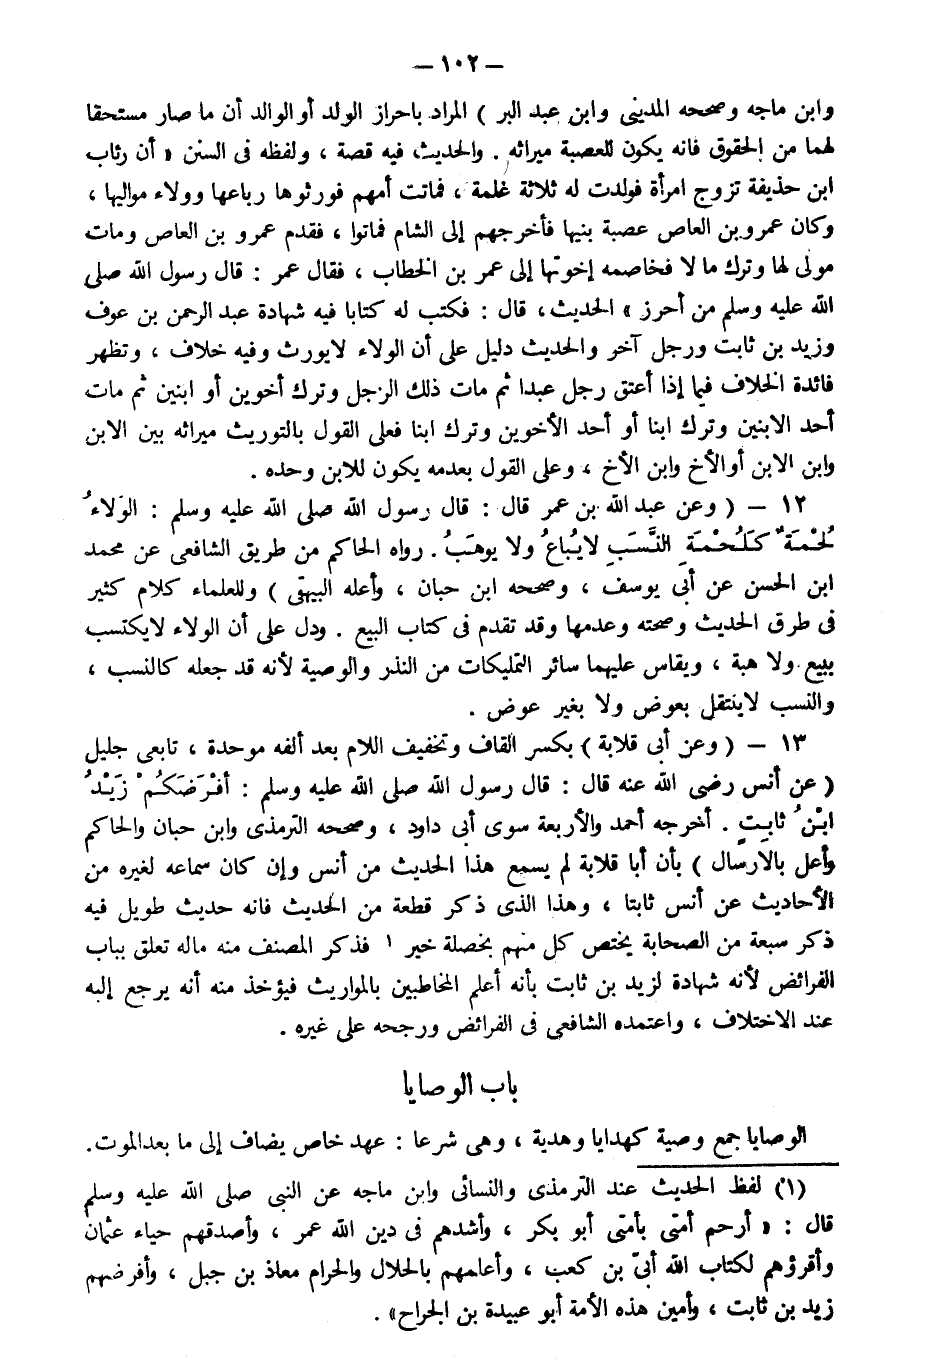 — ١٠٢ —
وابن ماجه وصححه المدينى وابن عبد البر ) المراد باحراز الولد أو الوالد أن ما صار مستحقا
لهما من الحقوق فانه يكون للعصبة ميراثه . والحديث فيه قصة ، ولفظه فى السنن « أن رئاب
ابن حذيفة تزوج امرأة فولدت له ثلاثة غلمة ، فماتت أمهم فورثوها رباعها وولاء مواليها ،
وكان عمرو بن العاص عصبة بنيها فأخرجهم إلى الشام فماتوا ، فقدم عمرو بن العاص ومات
مولى لها وترك مالا فخاصمه إخوتها إلى عمر بن الخطاب ، فقال عمر : قال رسول الله صلى
الله عليه وسلم من أحرز » الحديث ، قال : فكتب له كتابا فيه شهادة عبد الرحمن بن عوف
وزيد بن ثابت ورجل آخر والحديث دليل على أن الولاء لايورث وفيه خلاف ، وتظهر
فائدة الخلاف فيما إذا أعتق رجل عبدا ثم مات ذلك الرجل وترك أخوين أو ابنين ثم مات
أحد الابنين وترك ابنا أو أحد الأخوين وترك ابنا فعلى القول بالتوريث ميراثه بين الابن
وابن الابن أو الأخ وابن الأخ ، وعلى القول بعدمه يكون للابن وحده .
١٢ — ( وعن عبد الله بن عمر قال : قال رسول الله صلى الله عليه وسلم : الوَلاءُ
لُحْمَةٌ كَلُحْمَةِ النَّسَبِ لايُباعُ ولا يوهَبُ . رواه الحاكم من طريق الشافعى عن محمد
ابن الحسن عن أبى يوسف ، وصححه ابن حبان ، وأعله البيهقى ) وللعلماء كلام كثير
فى طرق الحديث وصحته وعدمها وقد تقدم فى كتاب البيع . ودل على أن الولاء لايكتسب
ببيع ولا هبة ، ويقاس عليهما سائر التمليكات من النذر والوصية لأنه قد جعله كالنسب ،
والنسب لاينتقل بعوض ولا بغير عوض .
١٣ — ( وعن أبى قلابة ) بكسر القاف وتخفيف اللام بعد ألفه موحدة ، تابعى جليل
( عن أنس رضى الله عنه قال : قال رسول الله صلى الله عليه وسلم : أفْرَضَكُمْ زَيْدُ
ابْنُ ثابِتٍ . أخرجه أحمد والأربعة سوى أبى داود ، وصححه الترمذى وابن حبان والحاكم
وأعل بالارسال ) بأن أبا قلابة لم يسمع هذا الحديث من أنس وإن كان سماعه لغيره من
الأحاديث عن أنس ثابتا ، وهذا الذى ذكر قطعة من الحديث فانه حديث طويل فيه
ذكر سبعة من الصحابة يختص كل منهم بخصلة خير ١ فذكر المصنف منه ماله تعلق بباب
الفرائض لأنه شهادة لزيد بن ثابت بأنه أعلم المخاطبين بالمواريث فيؤخذ منه أنه يرجع إليه
عند الاختلاف ، واعتمده الشافعى فى الفرائض ورجحه على غيره .
باب الوصايا
الوصايا جمع وصية كهدايا وهدية ، وهى شرعا : عهد خاص يضاف إلى ما بعد الموت .
(١) لفظ الحديث عند الترمذى والنسائى وابن ماجه عن النبى صلى الله عليه وسلم
قال : « أرحم أمتى بأمتى أبو بكر ، وأشدهم فى دين الله عمر ، وأصدقهم حياء عثمان
وأقرؤهم لكتاب الله أبىّ بن كعب ، وأعلمهم بالحلال والحرام معاذ بن جبل ، وأفرضهم
زيد بن ثابت ، وأمين هذه الأمة أبو عبيدة بن الجراح» .